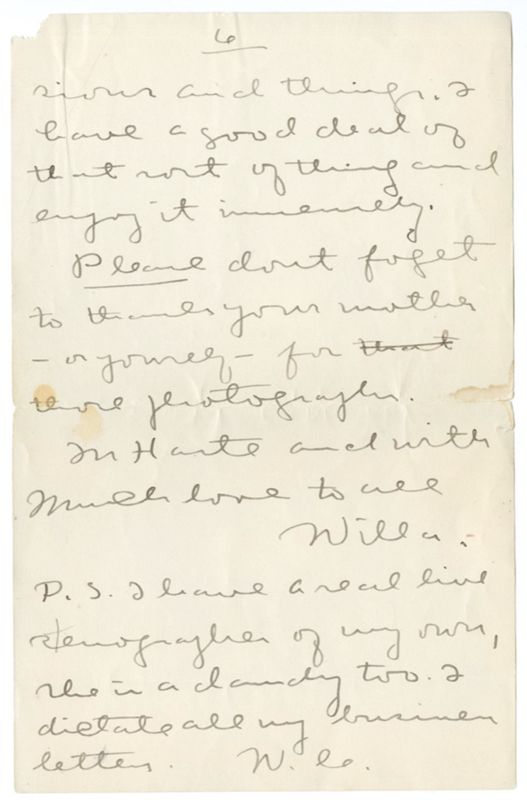 6
sions and things. I
have a good deal of
that sort of thing and
enjoy it immensely.
Please dont foget
to thank your mother
- or yourself - for that
those photographs.
In Haste and with
Much love to all
Willa.
P. S. I have a real live
stenographer of my own,
she is a dandy too. I
dictate all my business
letters. W. C.